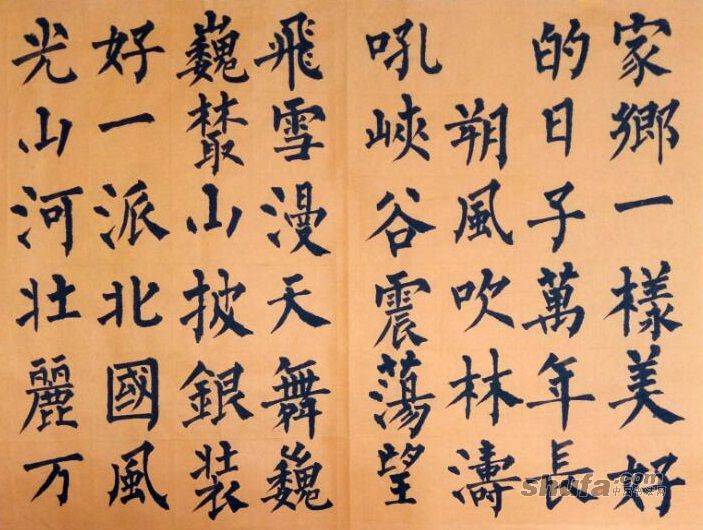 家鄉一樣美好
的日子萬年長
朔風吹林濤
吼峽谷震蕩望
飛雪漫天舞巍
巍叢山披銀裝
好一派北國風
光山河壯麗万
shufa.com
中国书法网